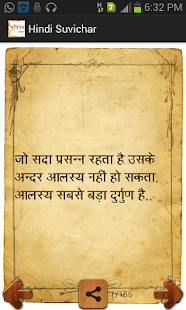 6:32 PM
Hindi Suvichar
जो सदा प्रसन्न रहता है उसके
अन्दर आलस्य नहीं हो सकता.
आलस्य सबसे बड़ा दुर्गुण है..